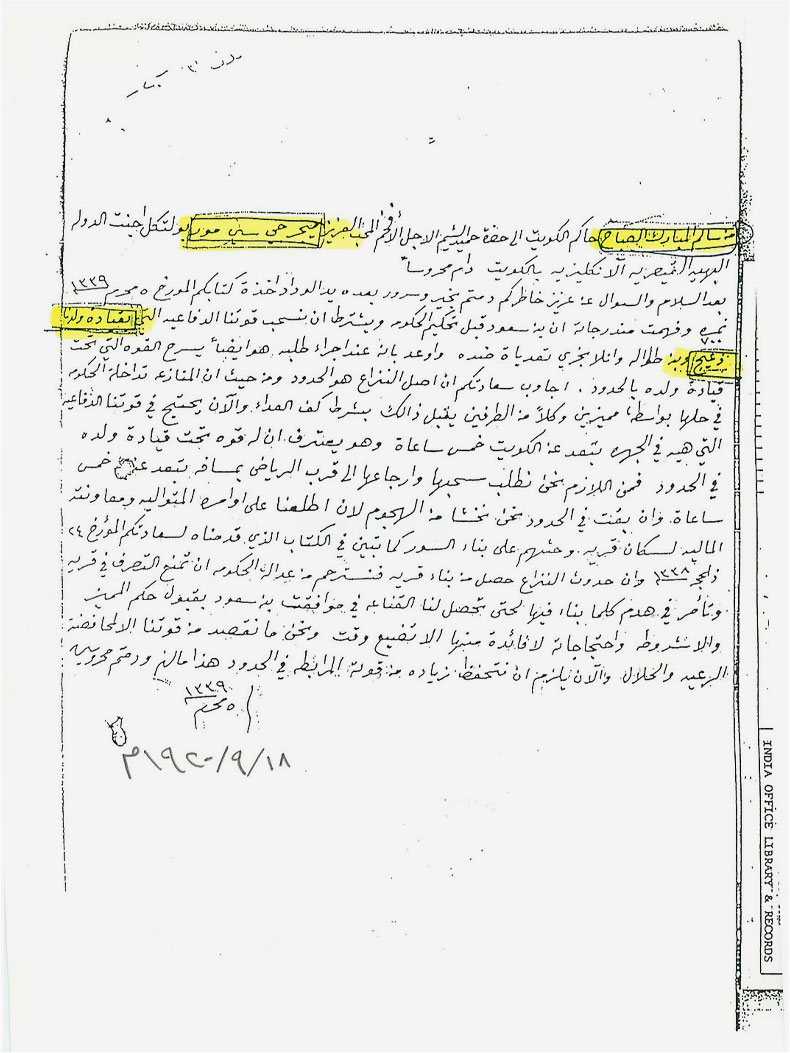 من سالم المبارك الصباح حاكم الكويت الى حضرة حميد الشيم الاجل الأفخم المحب العزيز ميجر جي سي مور بولتكل اجنت الدوله
البهيه القيصريه الانكليزيه بالكويت دام محروساً
بعد السلام والسوال عن عزيز خاطركم دمتم بخير وسرور بعده بيد الوداد اخذة كتابكم المورخ ٥ محرم ١٣٣٩
نمره ٧٠٠ وفهمت مندرجاته ان بن سعود قبل تحكيم الحكومه ويشترط ان نسحب قوتنا الدفاعيه التي بقيادة ولدنا
دعيج وبن طلاله وانلا نجري تعدياة ضده واوعد بانه عند اجراء طلبه هو ايضاً يسرح القوه التي تحت
قيادة ولده بالحدود . اجاوب سعادتكم ان اصل النزاع هو الحدود ومن حيث ان المنازعه تداخلة الحكومه
في حلها بواسطة مميزين وكلاً من الطرفين يقبل ذالك بشرط كف العداء والآن يحتج في قوتنا الدفاعيه
التي هيه في الجهره تبعد عن الكويت خمس ساعاة وهو يعترف ان له قوه تحت قيادة ولده
في الحدود فمن اللازم نحن نطلب سحبها وارجاعها الى قرب الرياض بمسافه تبعد عنه خمس
ساعاة . وان بقت في الحدود نحن نخشا من الهجوم لان اطلعنا على اوامره المتواليه ومعاونته
الماليه لسكان قريه وحثهم على بناء السور كما تبين في الكتاب الذي قدمناه لسعادتكم المؤرخ ٢٤
ذالحجه ١٣٣٨ وان حدوث النزاع حصل من بناء قريه فنسترحم من عدالة الحكومه ان تمنع التصرف في قريه
وتأمر في هدم كلما بناء فيها لحتى تحصل لنا القناعه في موافقت بن سعود بقبول حكم المميز
والاشروطه واحتجاجاته لا فائدة منها الا تضييع وقت ونحن ما نقصد من قوتنا الا لمحافضة
الرعيه والحلال والآن يلزم ان نتحفظ زياده من قوته المرابطه في الحدود هذا مالزم ودمتم محروسين
٥ محرم ١٣٣٩
١٨/٩/١٩٢٠م
INDIA OFFICE LIBRARY & RECORDS